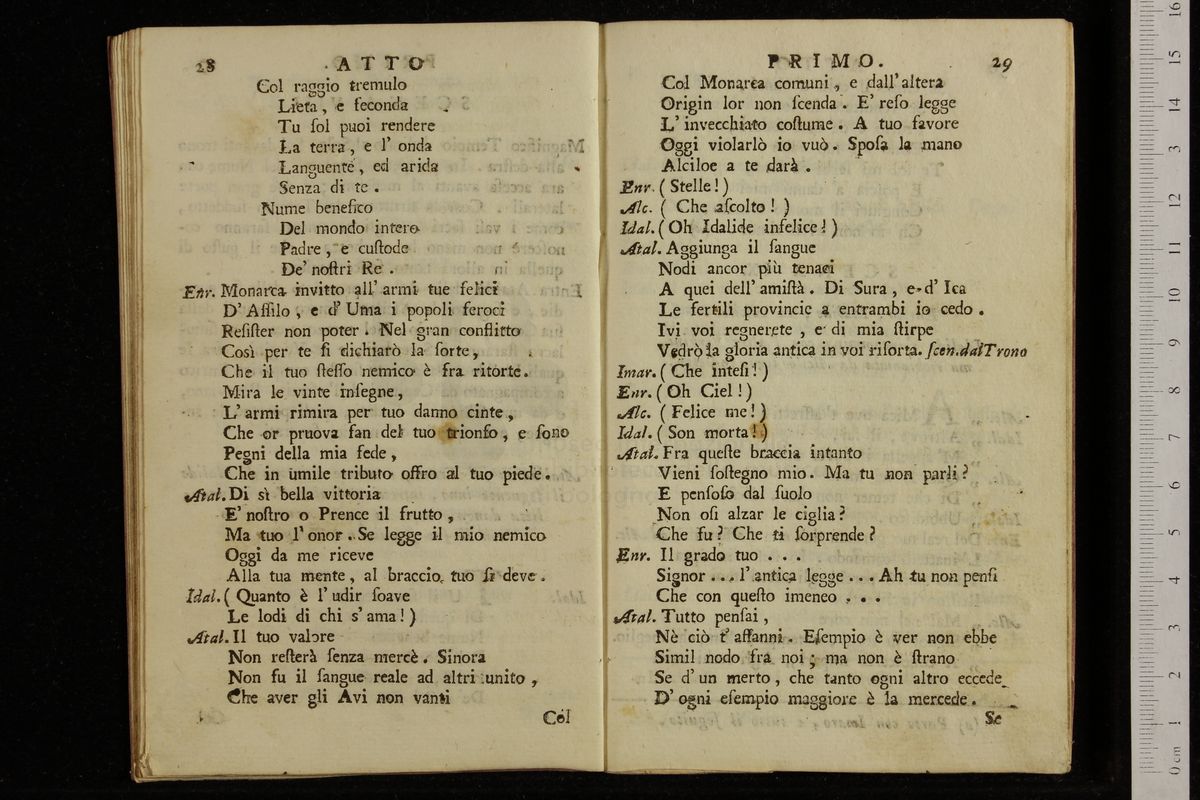 28 ATTO
Col raggio tremulo
Lieta, e feconda
Tu ſol puoi rendere
La terra, e l' onda
Languente, ed arida
Senza di te.
Nume benefico
Del mondo intero
Padre, e cuſtode
De' noſtri Re.
Enr. Monarca invitto all' armi tue felici
D' Aſſilo, e d' Uma i popoli feroci
Reſiſter non poter. Nel gran conflitto
Così per te ſi dichiarò la ſorte,
Che il tuo ſteſſo nemico è fra ritorte.
Mira le vinte inſegne,
L' armi rimira per tuo danno cinte,
Che or pruova fan del tuo trionfo, e ſono
Pegni della mia fede,
Che in umile tributo offro al tuo piede.
Atal. Di sì bella vittoria
E' noſtro o Prence il frutto,
Ma tuo l' onor. Se legge il mio nemico
Oggi da me riceve
Alla tua mente, al braccio tuo ſi deve.
Idal. ( Quanto è l' udir ſoave
Le lodi di chi s' ama! )
Atal. Il tuo valore
Non reſterà ſenza mercè. Sinora
Non fu il ſangue reale ad altri unito,
Che aver gli Avi non vanti
Col
PRIMO. 29
Col Monarca comuni, e dall' altera
Origin lor non ſcenda. E' reſo legge
L' invecchiato coſtume. A tuo favore
Oggi violarlo io vuò. Spoſa la mano
Alciloe a te darà.
Enr. ( Stelle! )
Alc. ( Che aſcolto! )
Idal. ( Oh Idalide infelice! )
Atal. Aggiunga il ſangue
Nodi ancor più tenaci
A quei dell' amiſtà. Di Sura, e d' Ica
Le fertili provincie a entrambi io cedo.
Ivi voi regnerete, e di mia ſtirpe
Vedrò la gloria antica in voi riſorta. ſcen. dal Trono
Imar. ( Che inteſi! )
Enr. ( Oh Ciel! )
Alc. ( Felice me! )
Idal. ( Son morta! )
Atal. Fra queſte braccia intanto
Vieni ſoſtegno mio. Ma tu non parli?
E penſoſo dal ſuolo
Non oſi alzar le ciglia?
Che fu? Che ti ſorprende?
Enr. Il grado tuo . . .
Signor . . . l' antica legge . . . Ah tu non penſi
Che con queſto imeneo . . .
Atal. Tutto penſai,
Nè ciò t' affanni. Eſempio è ver non ebbe
Simil nodo fra noi; ma non è ſtrano
Se d' un merto, che tanto ogni altro eccede
D' ogni eſempio maggiore è la mercede.
Se
0 cm 1 2 3 4 5 6 7 8 9 10 11 12 13 14 15 16